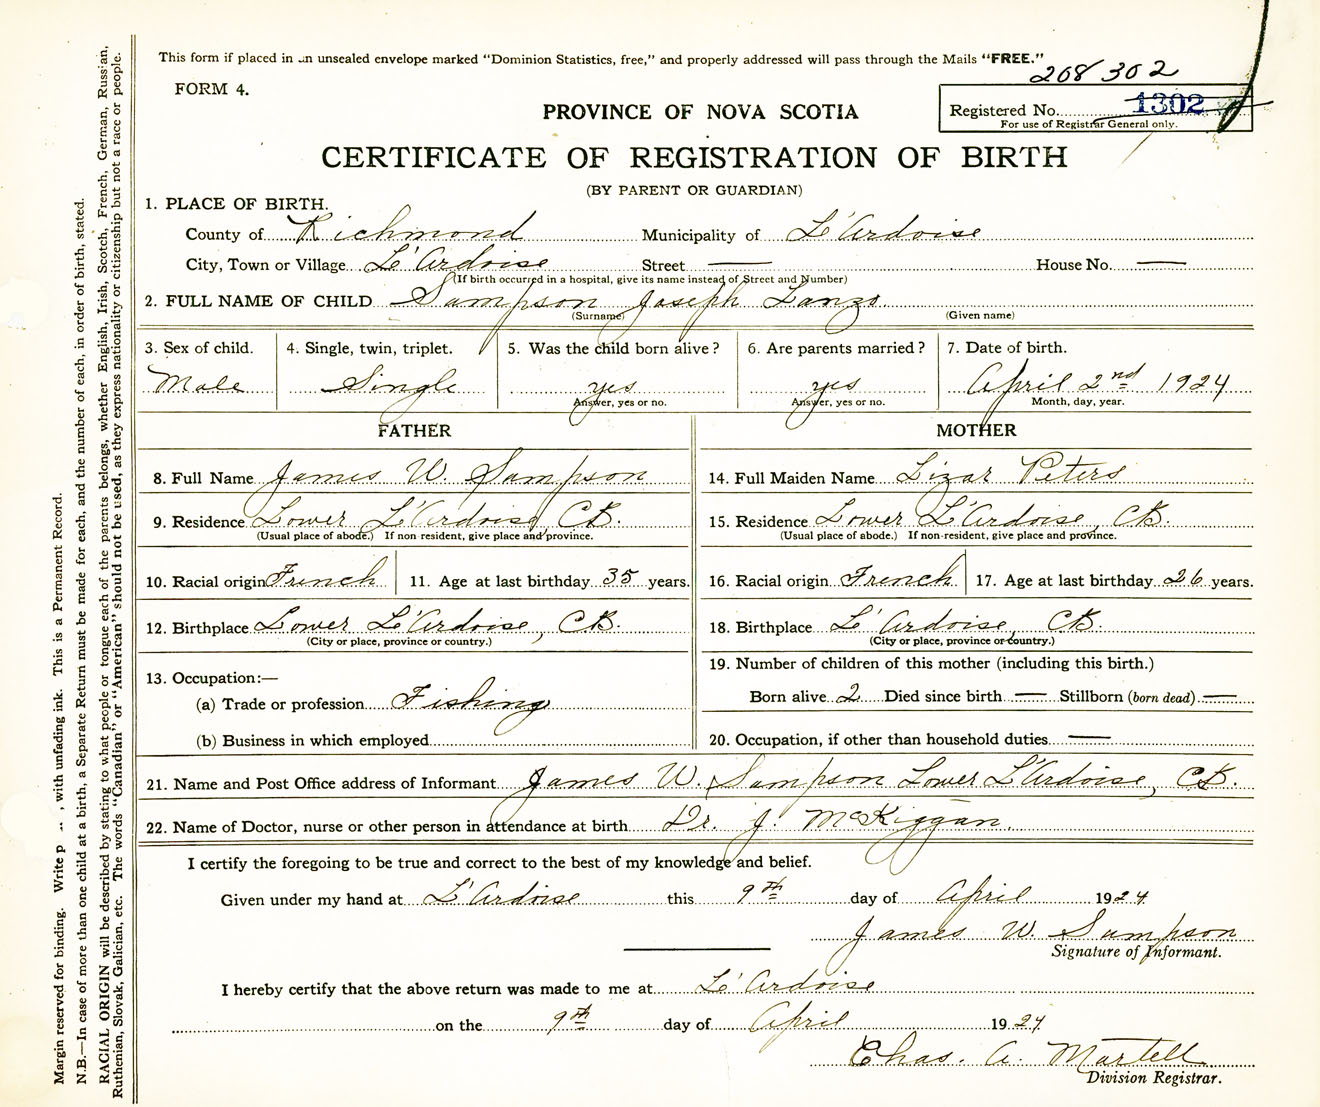 This form if placed in an unsealed envelope marked "Dominion Statistics, free," and properly addressed will pass through the Mails "FREE."
208302
FORM 4.
PROVINCE OF NOVA SCOTIA
Registered No. 1302
For use of Registrar General only.
CERTIFICATE OF REGISTRATION OF BIRTH
(BY PARENT OR GUARDIAN)
1. PLACE OF BIRTH.
County of Richmond Municipality of L'Ardoise
City, Town or Village L'Ardoise Street — House No. —
(If birth occurred in a hospital, give its name instead of Street and Number)
2. FULL NAME OF CHILD Sampson Joseph Lanzo
(Surname) (Given name)
3. Sex of child. 4. Single, twin, triplet. 5. Was the child born alive? 6. Are parents married? 7. Date of birth.
Male Single yes yes April 2nd 1924
Answer, yes or no. Answer, yes or no. Month, day, year.
FATHER MOTHER
8. Full Name James W. Sampson 14. Full Maiden Name Lizar Peters
9. Residence Lower L'Ardoise, CB. 15. Residence Lower L'Ardoise, CB.
(Usual place of abode.) If non-resident, give place and province. (Usual place of abode.) If non-resident, give place and province.
10. Racial origin French 11. Age at last birthday 35 years. 16. Racial origin French 17. Age at last birthday 26 years.
12. Birthplace Lower L'Ardoise, CB. 18. Birthplace L'Ardoise, CB.
(City or place, province or country.) (City or place, province or country.)
13. Occupation:— 19. Number of children of this mother (including this birth.)
(a) Trade or profession Fishing Born alive 2 Died since birth — Stillborn (born dead) —
(b) Business in which employed 20. Occupation, if other than household duties —
21. Name and Post Office address of Informant James W. Sampson Lower L'Ardoise, CB.
22. Name of Doctor, nurse or other person in attendance at birth Dr. J. McKiggan.
I certify the foregoing to be true and correct to the best of my knowledge and belief.
Given under my hand at L'Ardoise this 9th day of April 1924
James W. Sampson
Signature of Informant.
I hereby certify that the above return was made to me at L'Ardoise
on the 9th day of April 1924
Chas. A. Martell
Division Registrar.
Margin reserved for binding. Write p , with unfading ink. This is a Permanent Record.
N.B.—In case of more than one child at a birth, a Separate Return must be made for each, and the number of each, in order of birth, stated.
RACIAL ORIGIN will be described by stating to what people or tongue each of the parents belongs, whether English, Irish, Scotch, French, German, Russian,
Ruthenian, Slovak, Galician, etc. The words "Canadian" or "American" should not be used, as they express nationality or citizenship but not a race or people.